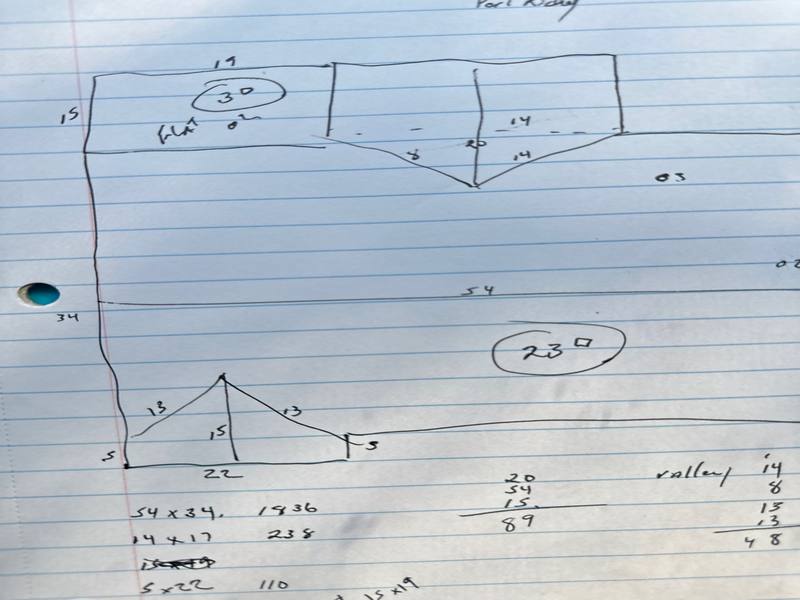 19
15
3□
flat 0²
14
20
8
14
03
02
54
34
23□
13
13
15
5
5
22
54 x 34. 1836
14 x 17 238
15 x 19
5 x 22 110
20
54
15.
89
valley 14
8
13
13
48
15 x 19